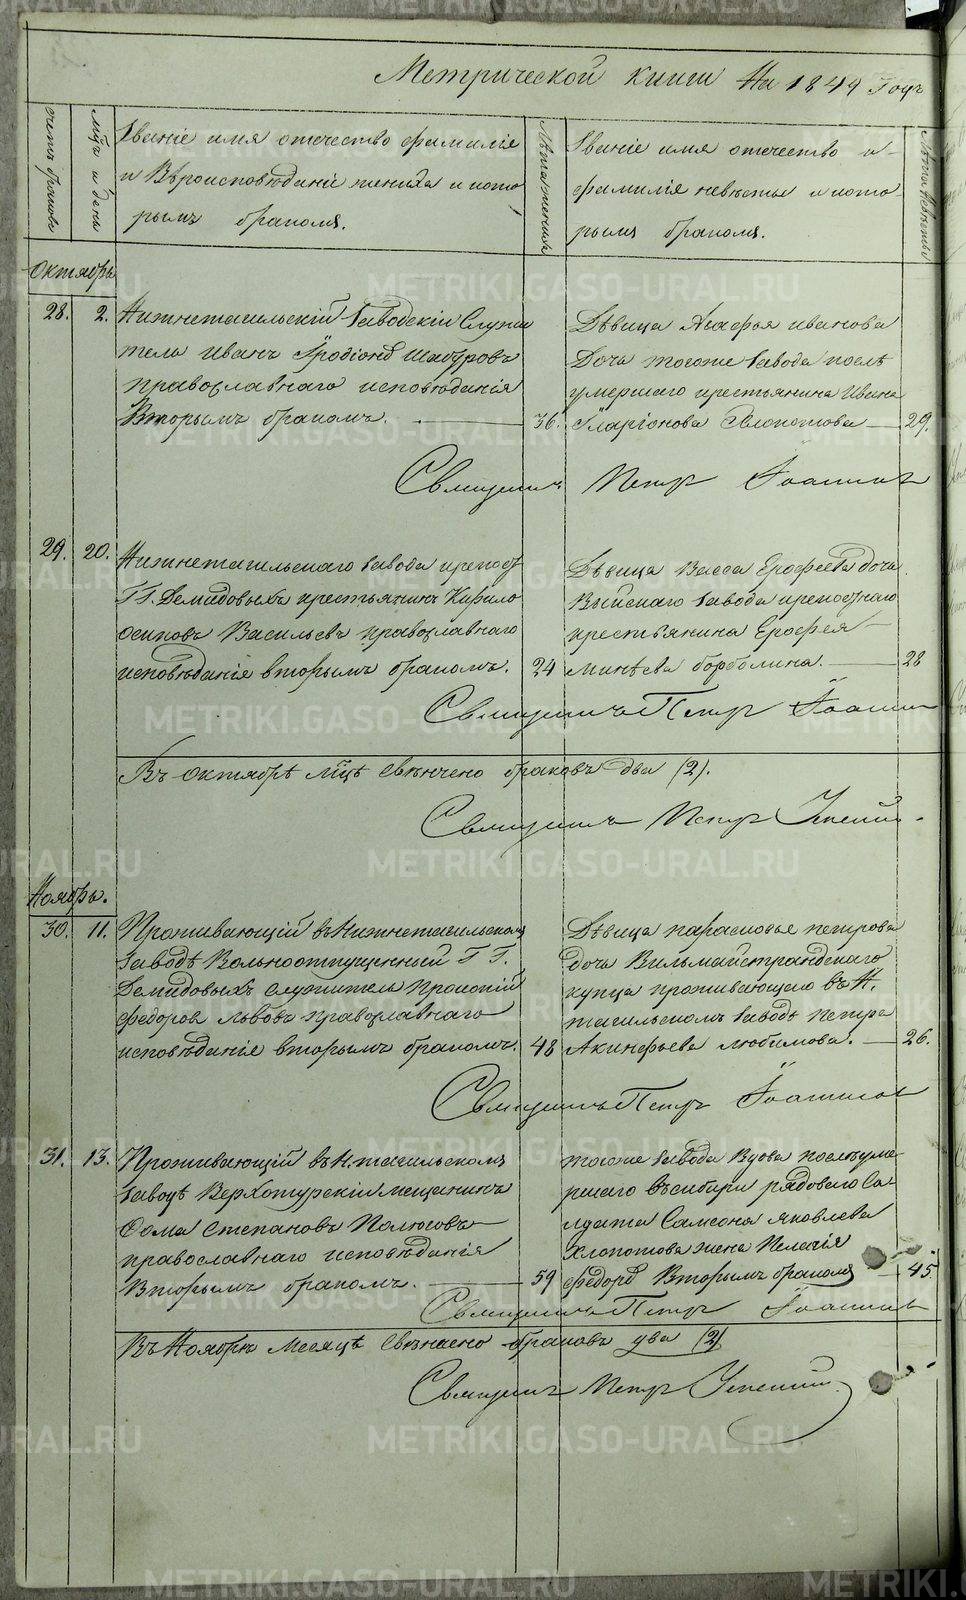 Метрической книги На 1849 Годъ
счетъ браковъ
мц̃ъ и день
Званіе имя отечество фамиліе
и Вѣроисповѣданіе жениха и кото
рымъ бракомъ.
Лѣта жениха
Званіе имя отечество и
фамиліе невѣсты и кото-
рымъ бракомъ.
Лѣта невѣсты
Октябрь
28. 2. Нижнетагильскій Заводскій Служи
тель Иванъ Иродіоновъ Шабуровъ
православнаго исповѣданія
Вторымъ бракомъ. 36.
Дѣвица Агафья иванова
Дочь тогоже Завода послѣ
умершаго крестьянина Ивана
Иларіонова Хлопотова 29.
Священникъ Петръ Іоанновъ
29. 20. Нижнетагильскаго Завода крепост
ГГ. Демидовыхъ крестьянинъ Кирило
осиповъ Васильевъ православнаго
исповѣданія вторымъ бракомъ. 24
Дѣвица Васса Ерофеева дочь
Выйскаго Завода крепостнаго
крестьянина Ерофея
Минѣева борболина. 28
Священникъ Петръ Іоаннов
Въ октябрѣ мц̃ѣ свѣнчено браковъ два (2).
Священникъ Петръ
Ноябрь.
30. 11. Проживающій въ Нижнетагильскомъ
Заводѣ Вольноотпущенный ГГ.
Демидовыхъ служитель Прокопій
федоров львовъ православнаго
исповѣданіе вторымъ бракомъ. 48
Дѣвица парасковье петрова
дочь Вильманстрандскаго
купца проживающаго въ Н.
тагильскомъ Заводѣ петра
Акинфьева любимова. 26.
Священникъ Петръ Іоанновъ
31. 13. Проживающій въ Н.тагильскомъ
Заводѣ Верхотурскій мещанинъ
Фома степановъ Полюговъ
православнаго исповѣданія
Вторымъ бракомъ. 59
тогоже Завода Вдова послѣ уме-
ршаго въ сибири рядоваго Со-
лдата Самсона яковлева
хлопотова жена Пелагія
федоров Вторымъ бракомъ 45
Священникъ Петръ Іоаннов
Въ Ноябрѣ месяцѣ свѣнчено браковъ два (2)
Священникъ Петръ
METRIKI.GASO-URAL.RU